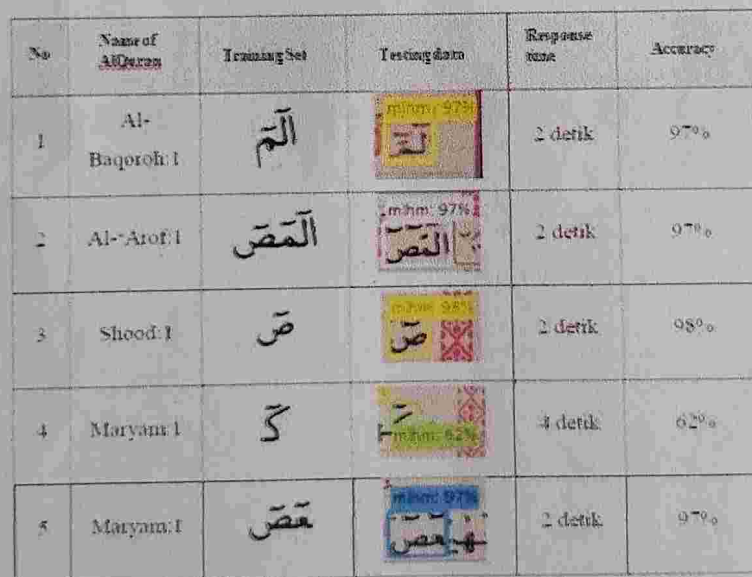 No
Name of
AlQuran
Training Set
Testing data
Response
time
Accuracy
1
Al-
Baqoroh:1
الٓمٓ
mlhm: 97%
2 detik
97%
2
Al-'Arof:1
الٓمٓصٓ
mlhm: 97%
2 detik
97%
3
Shood:1
صٓ
mlhm: 98%
2 detik
98%
4
Maryam:1
كٓ
mlhm: 62%
4 detik
62%
5
Maryam:1
عٓصٓ
mlhm: 97%
2 detik
97%